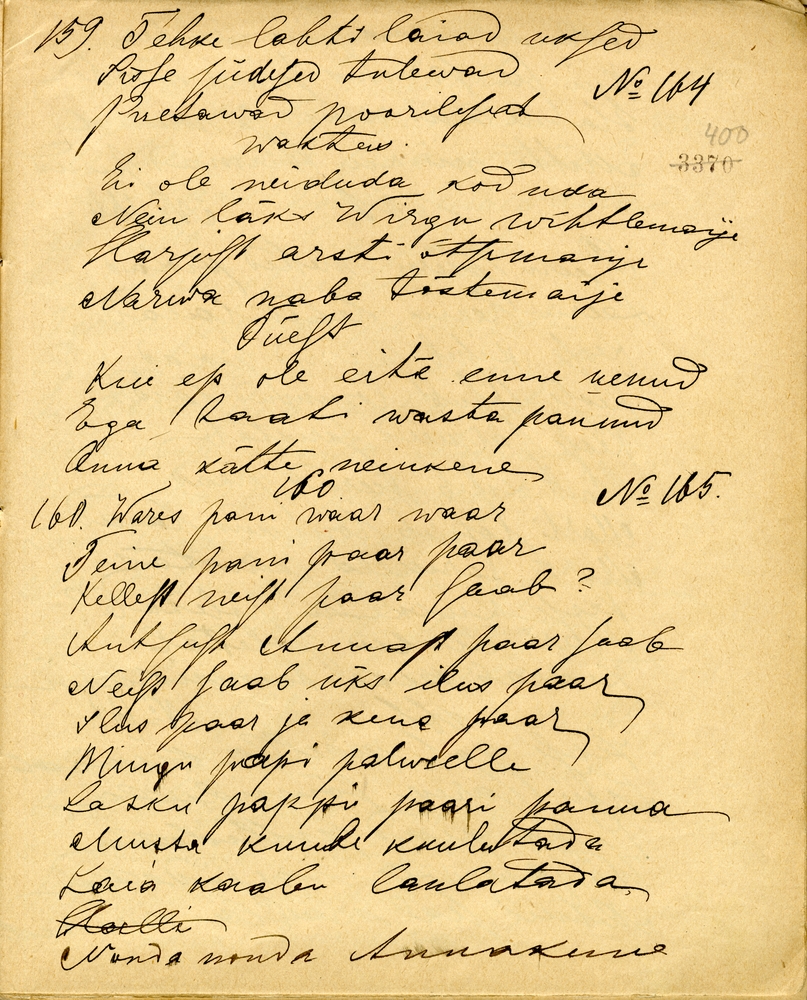 159. Tehke lahti laiad uksed
Sisse
tulewad
№ 164
Puetawad
wastu.
400
3370
Ei ole neiduda koduda
Nein läks Wirgu wihtlemaije
Harjust arsti õtsmaije
Narwa naba tõstemaije
Tüest
Kui es ole eita enne nenud
Ega taati wasta pannud
Anna kätte neiukene
160
№ 165.
160. Wares pani waar waar
Teine pani paar paar
Kellest neist paar saab?
Antsust Annast paar saab
Neist saab üks ilus paar
Ilus paar ja kena paar
Mingu papi palweelle
Lasku pappi paari panna
Musta kuube kuulutada
Laia kaabu laulatada
Nonda nonda Annakene